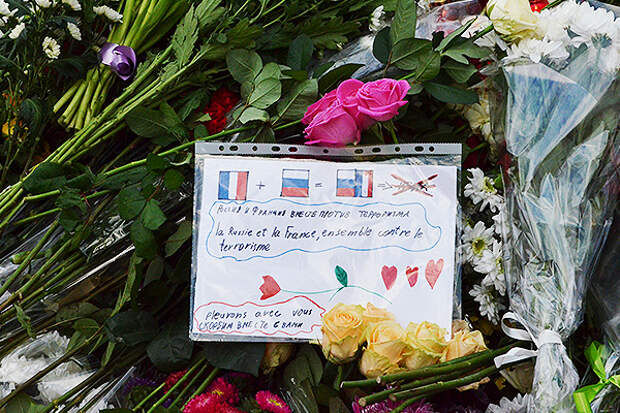 + = =
Россия и Франция вместе против терроризма
la Russie et la France, ensemble contre le
terrorisme
pleurons avec vous
скорбим вместе с вами